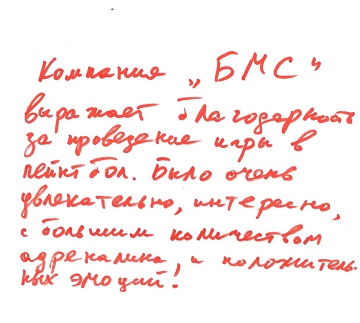 Компания „БМС“
выражает благодарность
за проведение игры в
пейнтбол. Было очень
увлекательно, интересно,
с большим количеством
адреналина, и положитель-
ных эмоций!